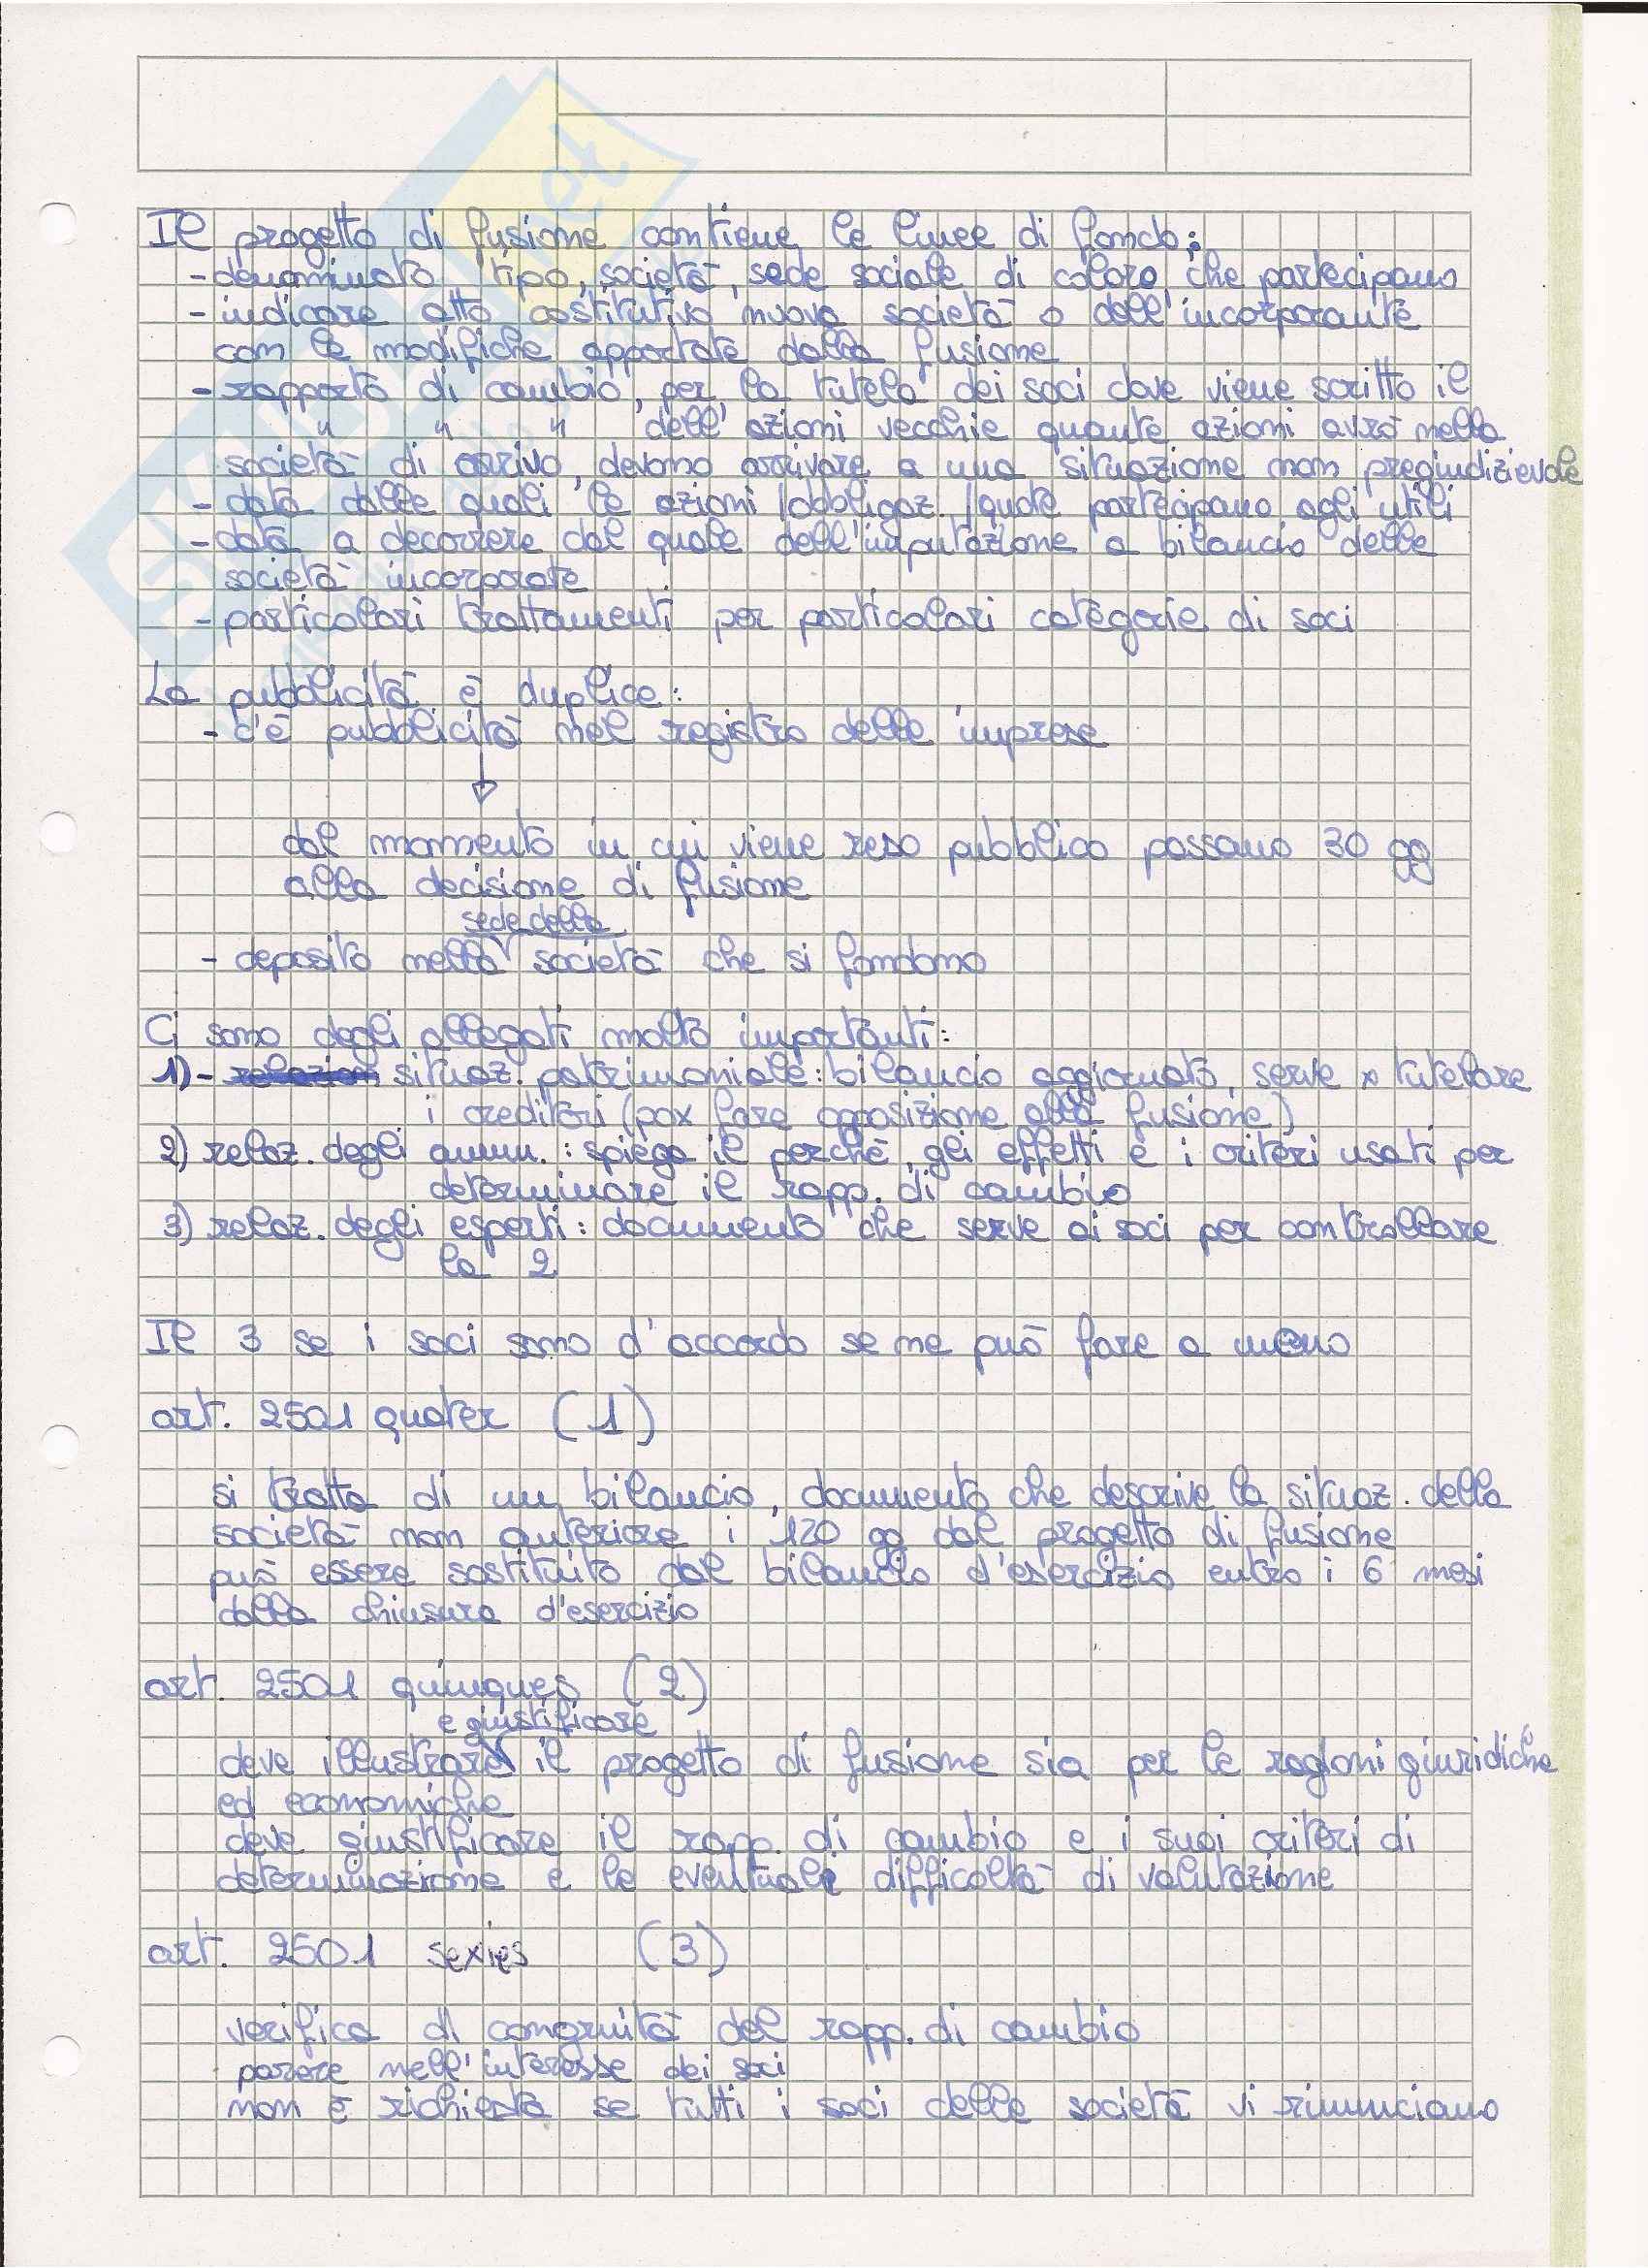 Il progetto di fusione contiene le linee di fondo:
- denominato tipo, società, sede sociale di coloro che partecipano
- indicare atto costitutivo nuova società o dell'incorporante
con le modifiche apportate dalla fusione
- rapporto di cambio, per la tutela dei soci dove viene scritto il
" " " dell'azioni vecchie quante azioni avrò nella
società di arrivo, devono arrivare a una situazione non pregiudizievole
- data dalle quali le azioni /obbligaz. /quote partecipano agli utili
- data a decorrere dal quale dell'imputazione a bilancio delle
società incorporate
- particolari trattamenti per particolari categorie di soci
La pubblicità è duplice:
- c'è pubblicità nel registro delle imprese
dal momento in cui viene reso pubblico passano 30 gg
alla decisione di fusione
sede della
- deposito nella società che si fondono
Ci sono degli allegati molto importanti:
1) - situaz. patrimoniale: bilancio aggiornato, serve x tutelare
i creditori (pox fare opposizione alla fusione)
2) relaz. degli amm. : spiega il perché, gli effetti e i criteri usati per
determinare il rapp. di cambio
3) relaz. degli esperti: documento che serve ai soci per controllare
la 2
Il 3 se i soci sono d'accordo se ne può fare a meno
art. 2501 quater (1)
si tratta di un bilancio, documento che descrive la situaz. della
società non anteriore i 120 gg dal progetto di fusione
può essere sostituito dal bilancio d'esercizio entro i 6 mesi
dalla chiusura d'esercizio
art. 2501 quinques (2)
e giustificare
deve illustrare il progetto di fusione sia per le ragioni giuridiche
ed economiche
deve giustificare il rapp. di cambio e i suoi criteri di
determinazione e le eventuale difficoltà di valutazione
art. 2501 sexies (3)
verifica di congruità del rapp. di cambio
parere nell'interesse dei soci
non è richiesta se tutti i soci delle società vi rinunciano